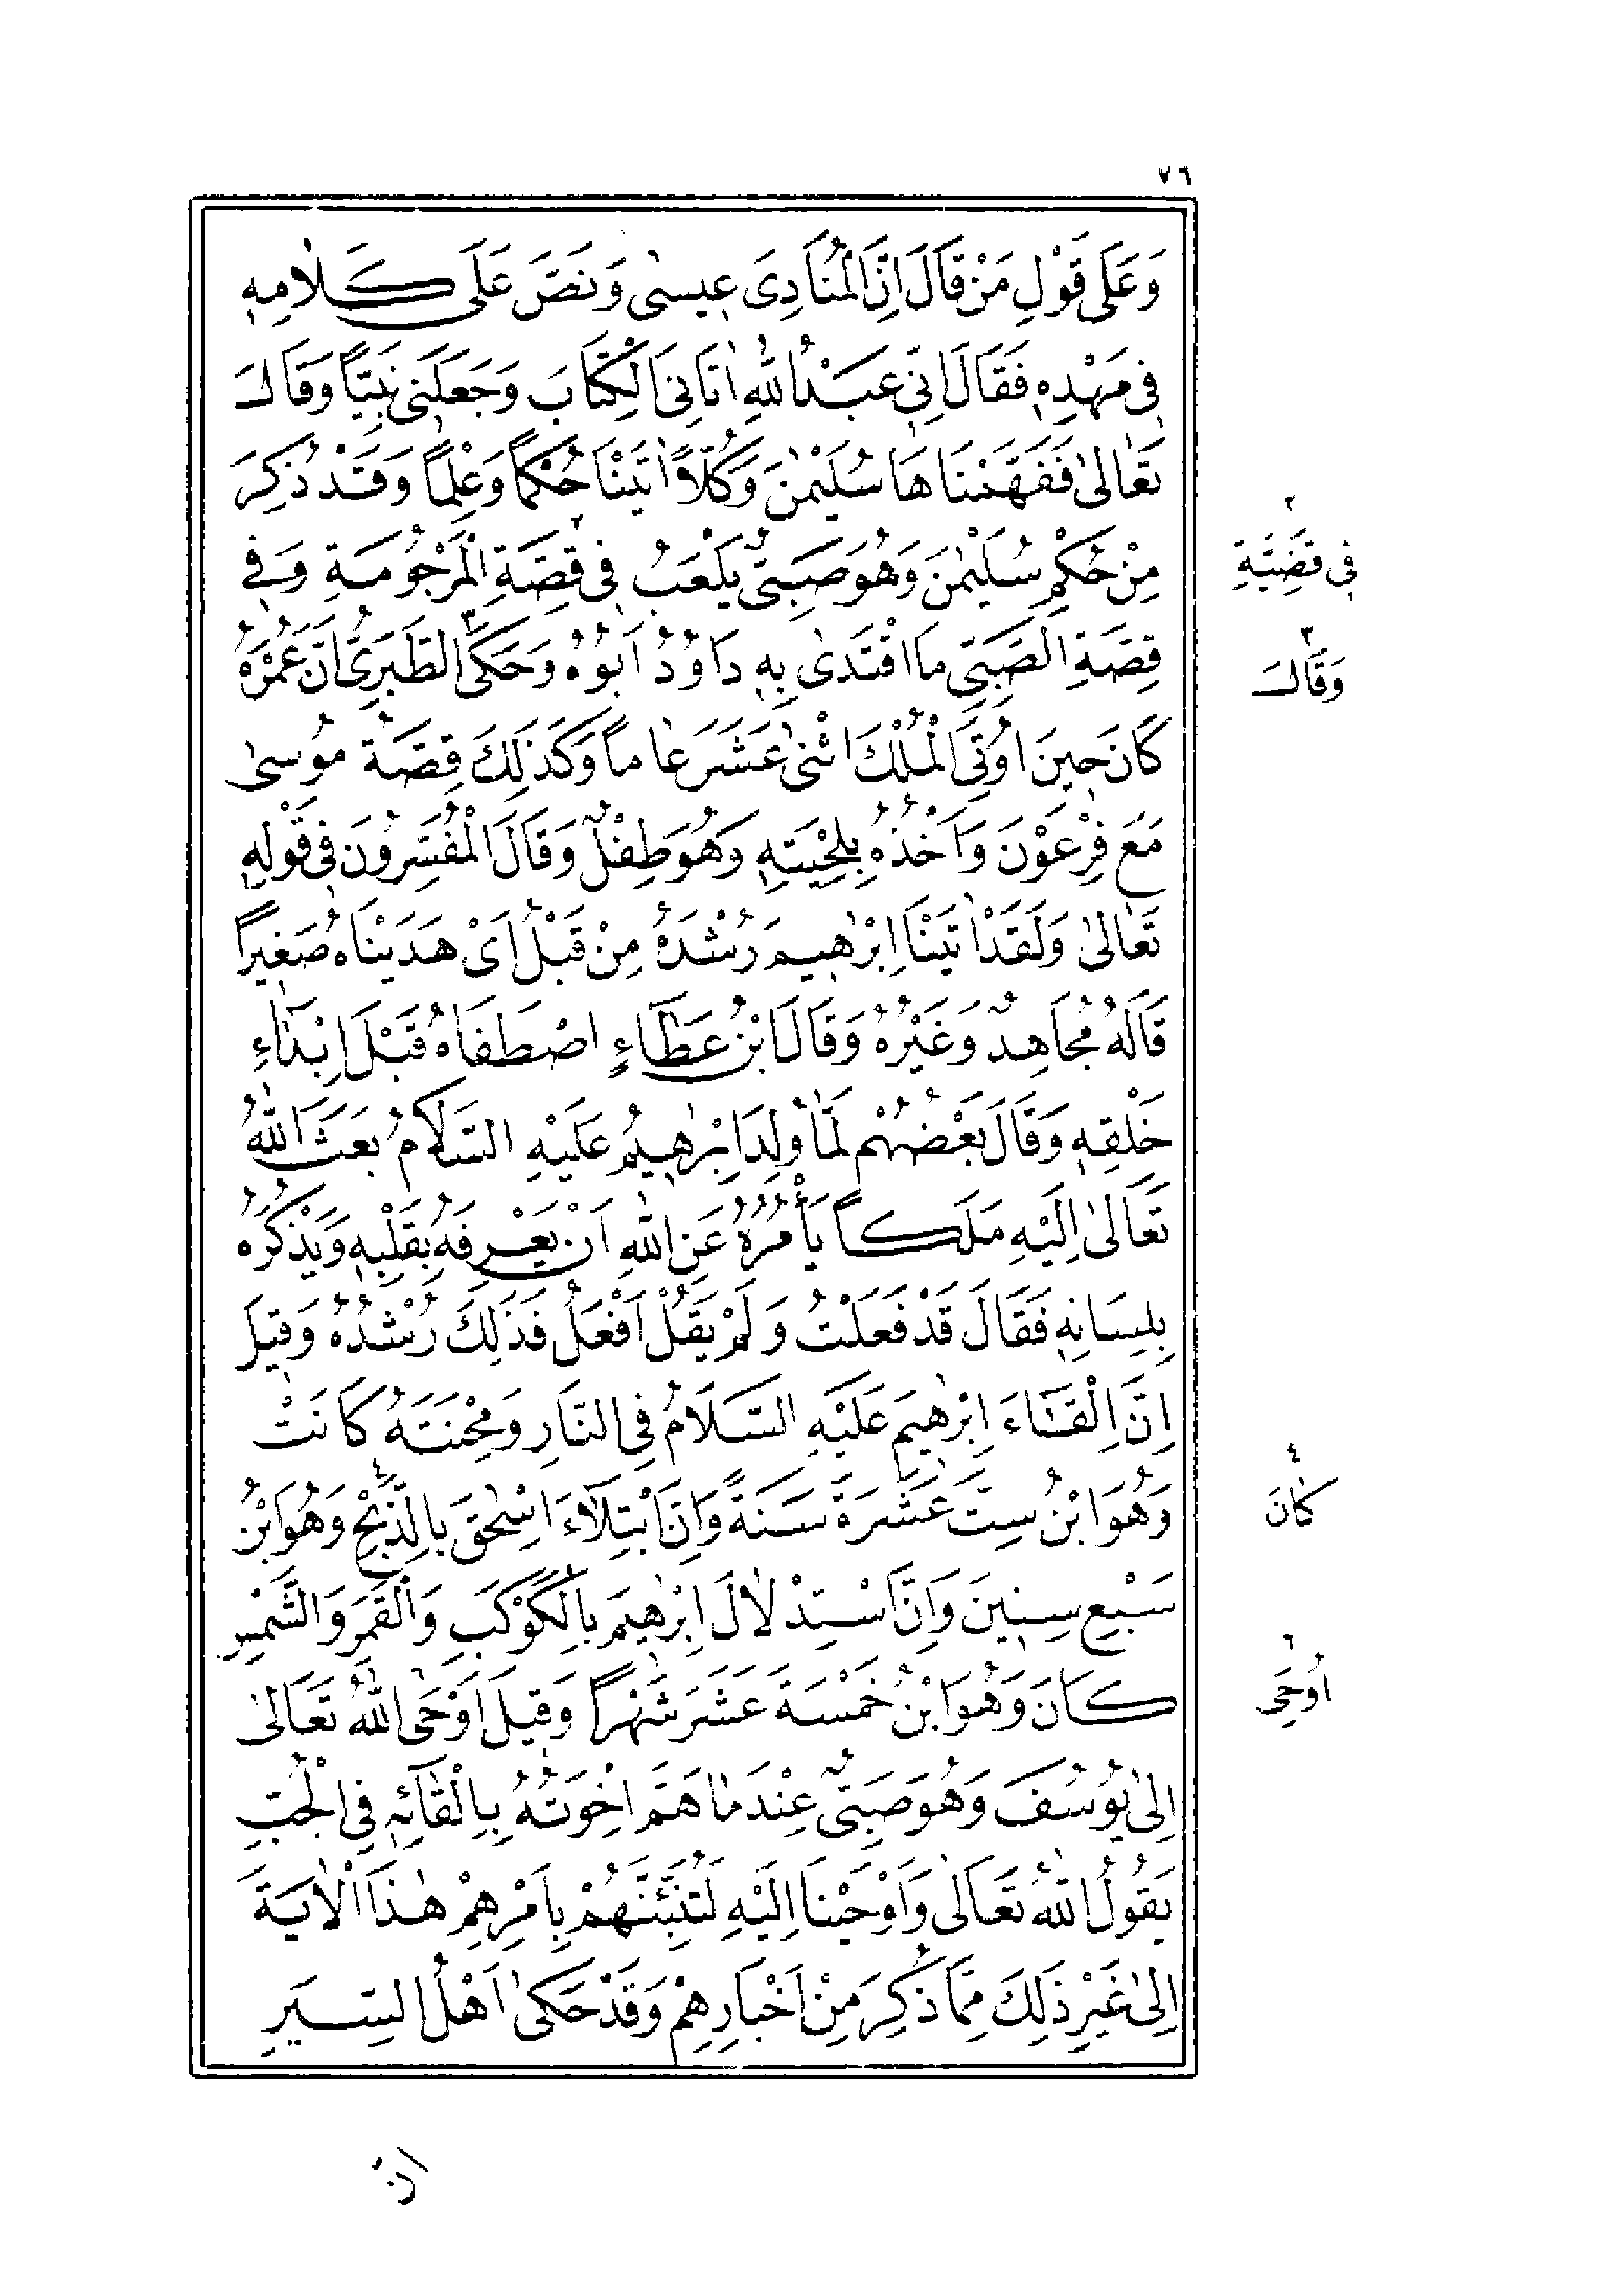 ٧٦
وَعَلَى قَوْلِ مَنْ قَالَ اِنَّ الْمُنَادِىَ عِيسٰى وَنَصَّ عَلَى كَلَامِهٖ
فِى مَهْدِهٖ فَقَالَ اِنِّى عَبْدُ اللّٰهِ اٰتَانِىَ الْكِتَابَ وَجَعَلَنِى نَبِيًّا وَقَالَ
تَعَالٰى فَفَهَّمْنَاهَا سُلَيْمٰنَ وَكُلًّا اٰتَيْنَا حُكْمًا وَعِلْمًا وَقَدْ ذُكِرَ
مِنْ حُكْمِ سُلَيْمٰنَ وَهُوَ صَبِىٌّ يَلْعَبُ فِى ٢ قِصَّةِ الْمَرْجُومَةِ وَفِى
قِصَّةِ الصَّبِىِّ مَا اقْتَدٰى بِهٖ دَاوُدُ اَبُوهُ وَحَكَى ٣ الطَّبَرِىُّ اَنَّ عُمْرَهُ
كَانَ حِينَ اُوتِىَ الْمُلْكَ اثْنَىْ عَشَرَ عَامًا وَكَذَلِكَ قِصَّةُ مُوسٰى
مَعَ فِرْعَوْنَ وَاَخْذُهُ بِلِحْيَتِهٖ وَهُوَ طِفْلٌ وَقَالَ الْمُفَسِّرُونَ فِى قَوْلِهٖ
تَعَالٰى وَلَقَدْ اٰتَيْنَا اِبْرٰهِيمَ رُشْدَهُ مِنْ قَبْلُ اَىْ هَدَيْنَاهُ صَغِيرًا
قَالَهُ مُجَاهِدٌ وَغَيْرُهُ وَقَالَ ابْنُ عَطَاءٍ اصْطَفَاهُ قَبْلَ اِبْدَاءِ
خَلْقِهٖ وَقَالَ بَعْضُهُمْ لَمَّا وُلِدَ اِبْرٰهِيمُ عَلَيْهِ السَّلَامُ بَعَثَ اللّٰهُ
تَعَالٰى اِلَيْهِ مَلَكًا يَأْمُرُهُ عَنِ اللّٰهِ اَنْ يَعْرِفَهُ بِقَلْبِهٖ وَيَذْكُرَهُ
بِلِسَانِهٖ فَقَالَ قَدْ فَعَلْتُ وَلَمْ يَقُلْ اَفْعَلُ فَذَلِكَ رُشْدُهُ وَقِيلَ
اِنَّ اِلْقَاءَ اِبْرٰهِيمَ عَلَيْهِ السَّلَامُ فِى النَّارِ وَمِحْنَتَهُ كَانَتْ
وَهُوَ ابْنُ سِتَّ عَشْرَةَ سَنَةً وَاِنَّ ابْتِلَاءَ اِسْحٰقَ بِالذَّبْحِ ٤ وَهُوَ ابْنُ
سَبْعِ سِنِينَ وَاِنَّ اسْتِدْلَالَ اِبْرٰهِيمَ بِالْكَوْكَبِ وَالْقَمَرِ وَالشَّمْسِ
كَانَ وَهُوَ ابْنُ خَمْسَةَ عَشَرَ شَهْرًا وَقِيلَ اَوْحَى ٦ اللّٰهُ تَعَالٰى
اِلٰى يُوسُفَ وَهُوَ صَبِىٌّ عِنْدَمَا هَمَّ اِخْوَتُهُ بِاِلْقَائِهٖ فِى الْجُبِّ
يَقُولُ اللّٰهُ تَعَالٰى وَاَوْحَيْنَا اِلَيْهِ لَتُنَبِّئَنَّهُمْ بِاَمْرِهِمْ هٰذَا الْاٰيَةَ
اِلٰى غَيْرِ ذَلِكَ مِمَّا ذُكِرَ مِنْ اَخْبَارِهِمْ وَقَدْ حَكٰى اَهْلُ السِّيَرِ
٢
فِى قَضِيَّةِ
٣
وَقَالَ
٤
كَانَ
٦
اُوحِىَ
اَنَّ